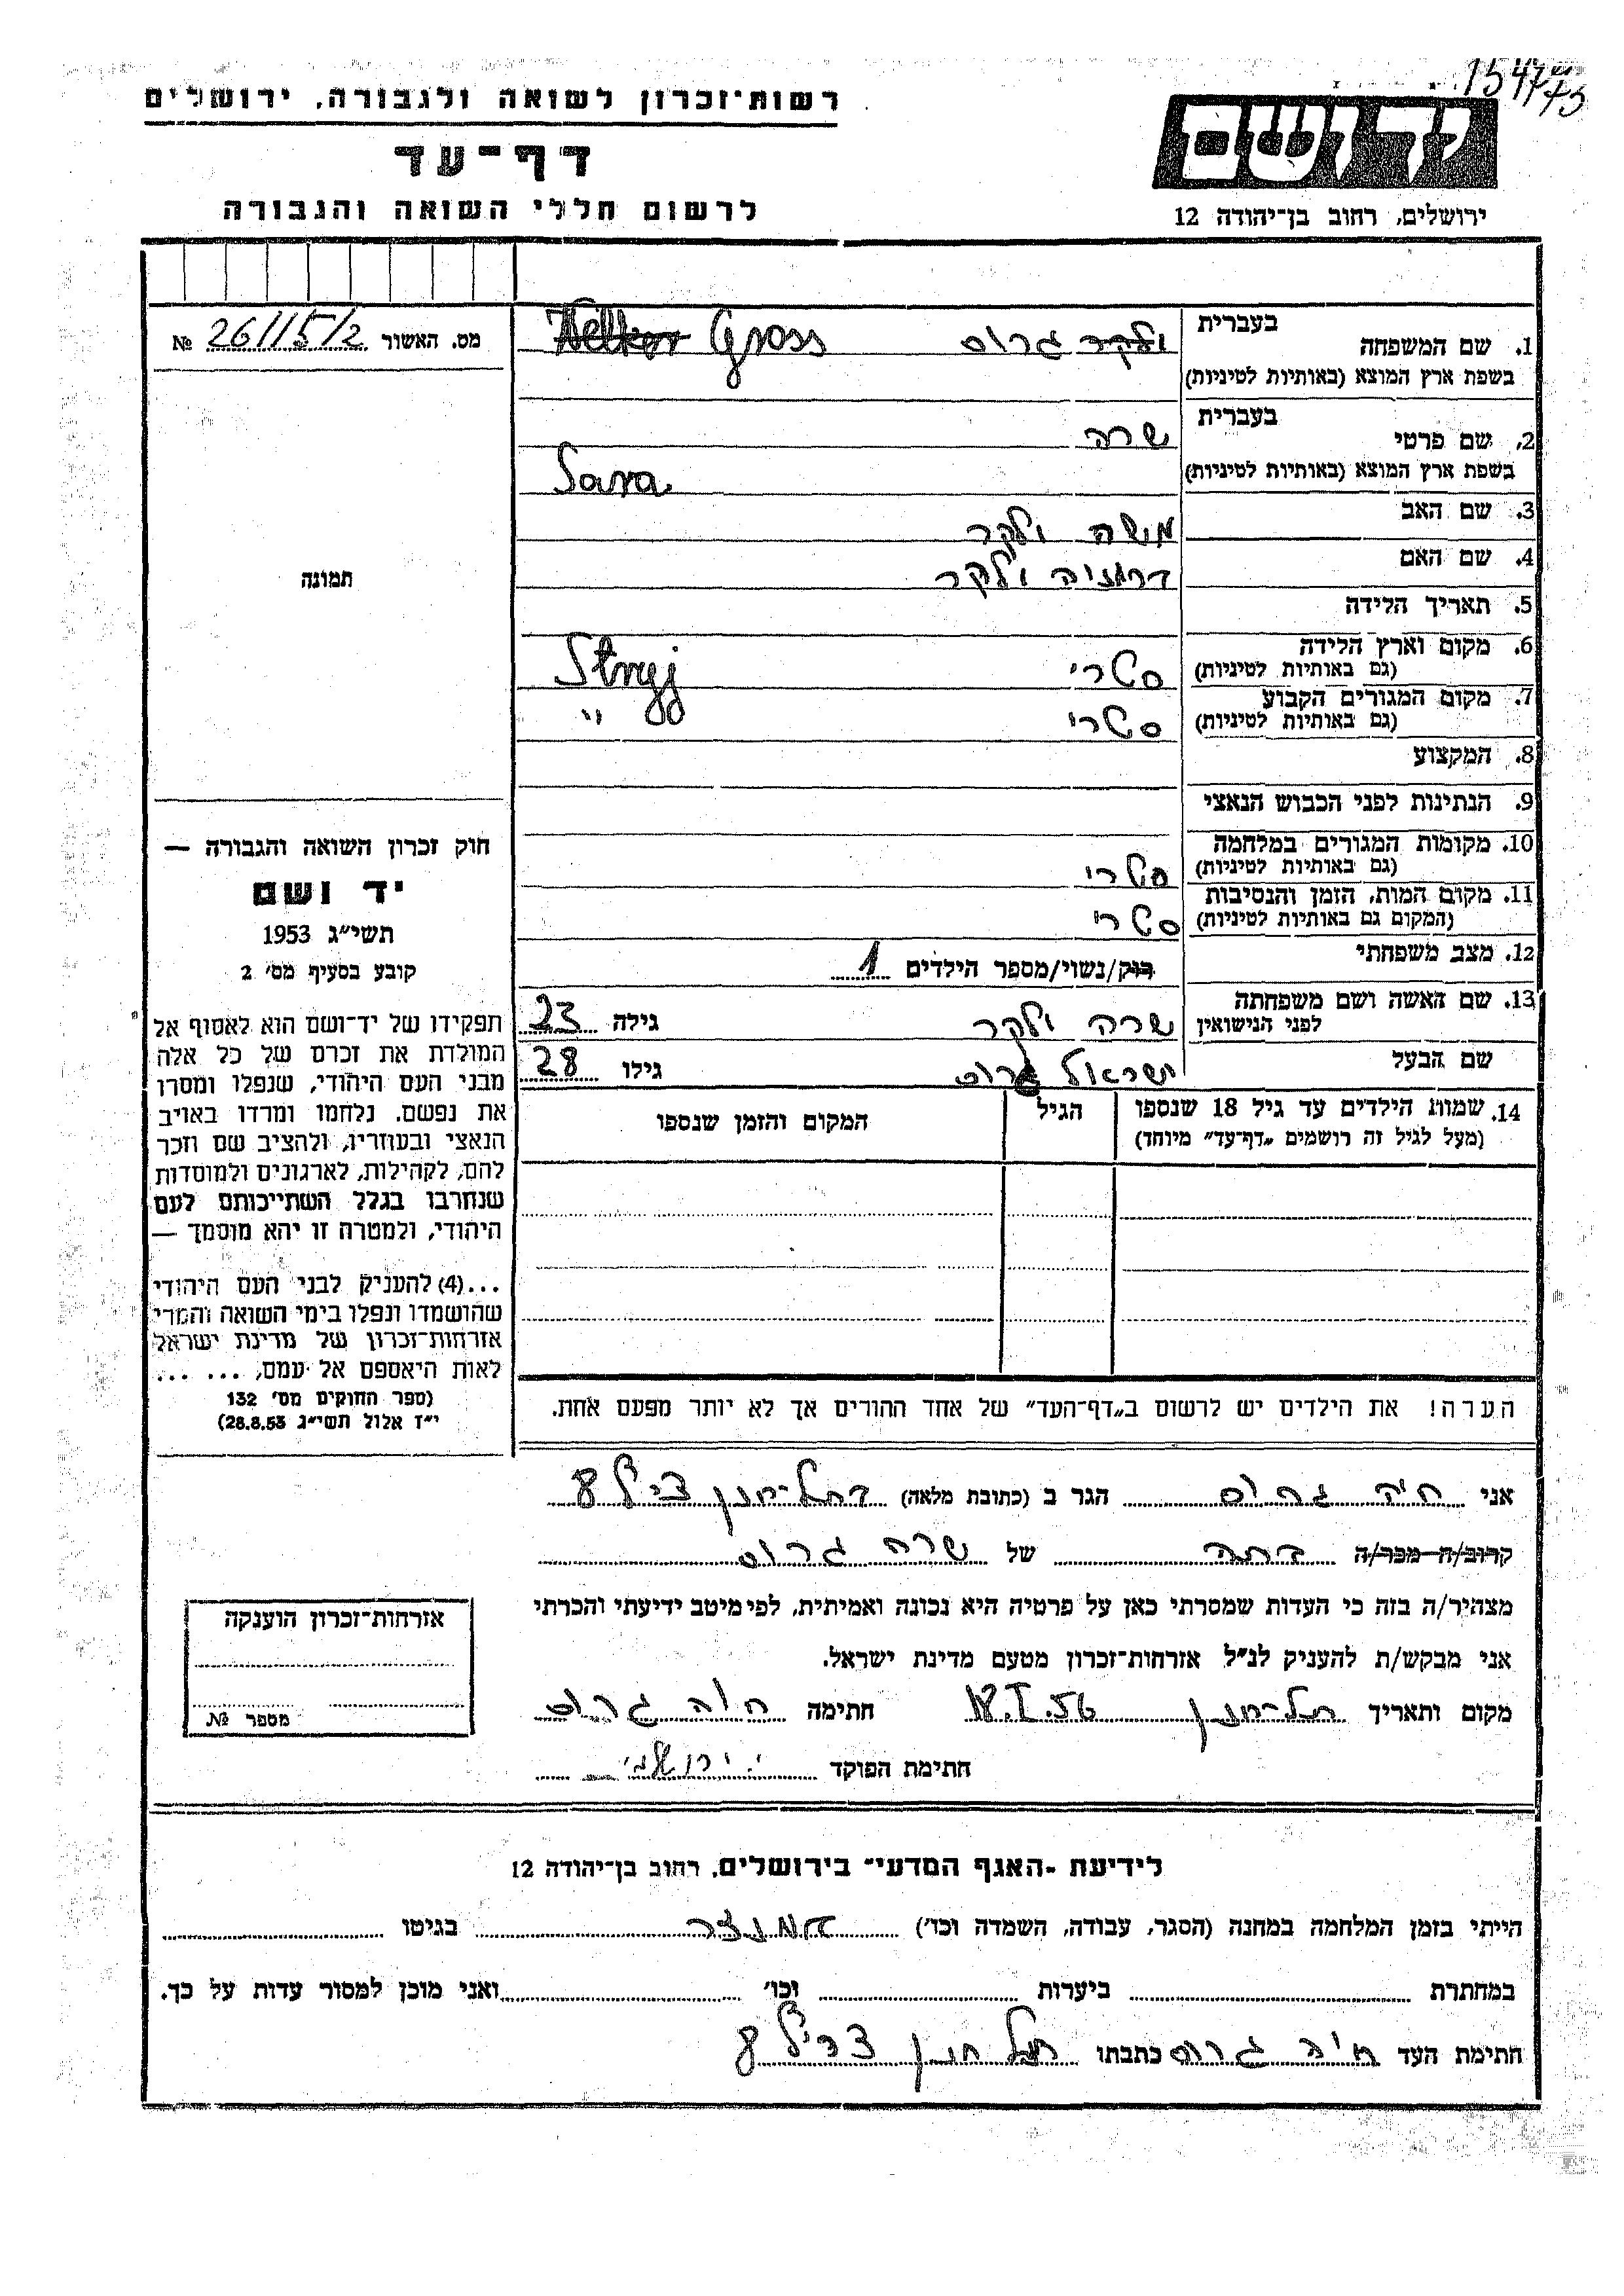 154775
רשות־זכרון לשואה ולגבורה, ירושלים
דף־עד
לרשום חללי השואה והגבורה
יד ושם
ירושלים, רחוב בן־יהודה 12
מס. האשור 26115/2 №
תמונה
חוק זכרון השואה והגבורה —
יד ושם
תשי״ג 1953
קובע בסעיף מס׳ 2
תפקידו של יד־ושם הוא לאסוף אל
המולדת את זכרם של כל אלה
מבני העם היהודי, שנפלו ומסרו
את נפשם, נלחמו ומרדו באויב
הנאצי ובעוזריו, ולהציב שם וזכר
להם, לקהילות, לארגונים ולמוסדות
שנחרבו בגלל השתייכותם לעם
היהודי, ולמטרה זו יהא מוסמך —
...(4) להעניק לבני העם היהודי
שהושמדו ונפלו בימי השואה והמרי
אזרחות־זכרון של מדינת ישראל
לאות היאספם אל עמם, ... ...
(ספר החוקים מס׳ 132
י״ז אלול תשי״ג 28.8.53)
בעברית
1. שם המשפחה ולקר גרוס Welker Gross
בשפת ארץ המוצא (באותיות לטיניות)
בעברית
2. שם פרטי שרה
בשפת ארץ המוצא (באותיות לטיניות) Sara
3. שם האב משה ולקר
4. שם האם ולקר
5. תאריך הלידה
6. מקום וארץ הלידה
(גם באותיות לטיניות) סטרי Stryj
7. מקום המגורים הקבוע
(גם באותיות לטיניות) סטרי "
8. המקצוע
9. הנתינות לפני הכבוש הנאצי
10. מקומות המגורים במלחמה
(גם באותיות לטיניות) סטרי
11. מקום המות, הזמן והנסיבות
(המקום גם באותיות לטיניות) סטרי
12. מצב משפחתי רוק/נשוי/מספר הילדים 1
13. שם האשה ושם משפחתה
לפני הנישואין שרה ולקר גילה 23
שם הבעל ישראל גרוס גילו 28
14. שמות הילדים עד גיל 18 שנספו הגיל המקום והזמן שנספו
(מעל לגיל זה רושמים „דף־עד״ מיוחד)
הערה! את הילדים יש לרשום ב„דף־העד״ של אחד ההורים אך לא יותר מפעם אחת.
אני חיה גרוס הגר ב (כתובת מלאה) בתל־חנן 8
קרוב/ה מכר/ה של שרה גרוס
מצהיר/ה בזה כי העדות שמסרתי כאן על פרטיה היא נכונה ואמיתית, לפי מיטב ידיעתי והכרתי
אני מבקש/ת להעניק לנ״ל אזרחות־זכרון מטעם מדינת ישראל.
מקום ותאריך תל־חנן 18.I.56 חתימה חיה גרוס
חתימת הפוקד
אזרחות־זכרון הוענקה
מספר №
לידיעת ־האגף המדעי־ בירושלים, רחוב בן־יהודה 12
הייתי בזמן המלחמה במחנה (הסגר, עבודה, השמדה וכו׳) בגיטו
במחתרת ביערות וכו׳ ואני מוכן למסור עדות על כך.
חתימת העד חיה גרוס כתבתו תל חנן צריף 8